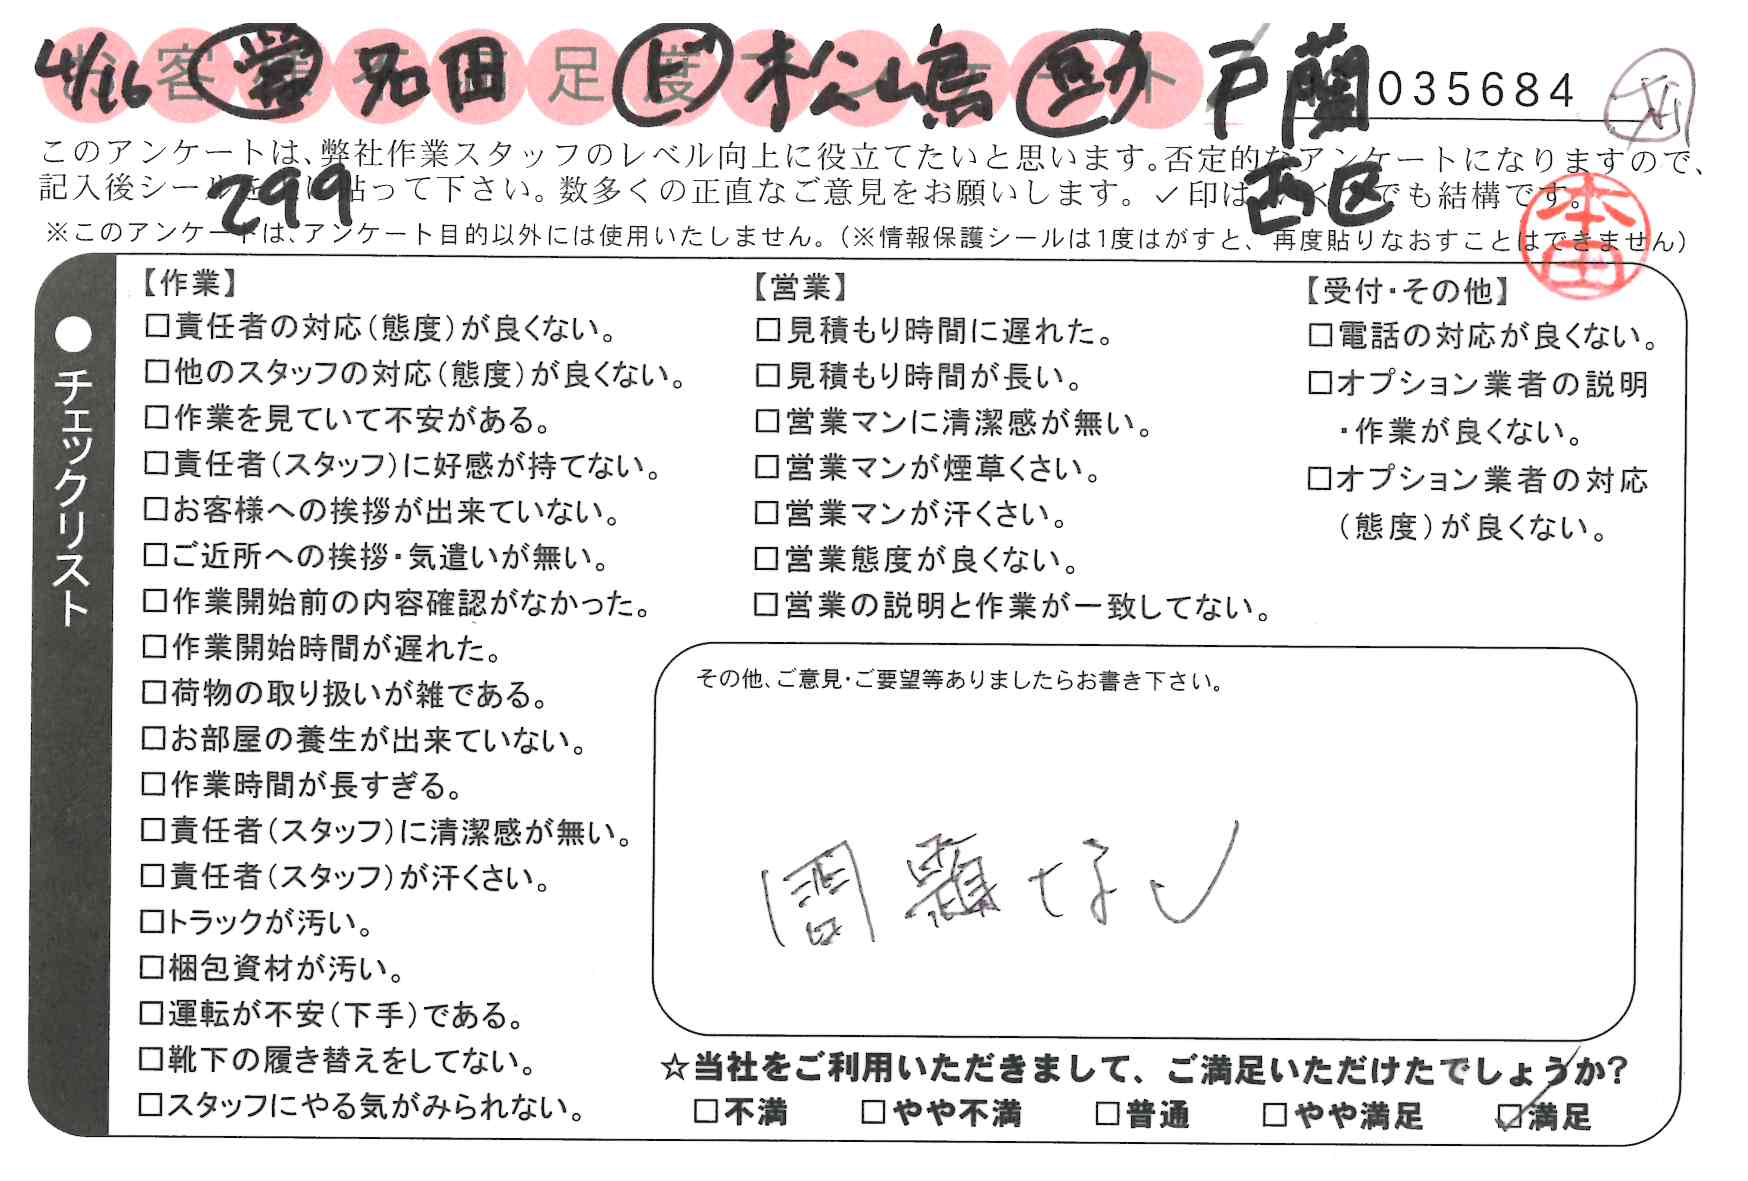 4/16 営 名田 ド 松山鳥 助 戸蘭 035684
このアンケートは、弊社作業スタッフのレベル向上に役立てたいと思います。否定的なアンケートになりますので、
記入後シール 貼って下さい。数多くの正直なご意見をお願いします。✓印は いく でも結構です。
299 西区
※このアンケートは、アンケート目的以外には使用いたしません。(※情報保護シールは1度はがすと、再度貼りなおすことはできません)
本田
●チェックリスト
【作業】
□責任者の対応(態度)が良くない。
□他のスタッフの対応(態度)が良くない。
□作業を見ていて不安がある。
□責任者(スタッフ)に好感が持てない。
□お客様への挨拶が出来ていない。
□ご近所への挨拶・気遣いが無い。
□作業開始前の内容確認がなかった。
□作業開始時間が遅れた。
□荷物の取り扱いが雑である。
□お部屋の養生が出来ていない。
□作業時間が長すぎる。
□責任者(スタッフ)に清潔感が無い。
□責任者(スタッフ)が汗くさい。
□トラックが汚い。
□梱包資材が汚い。
□運転が不安(下手)である。
□靴下の履き替えをしてない。
□スタッフにやる気がみられない。
【営業】
□見積もり時間に遅れた。
□見積もり時間が長い。
□営業マンに清潔感が無い。
□営業マンが煙草くさい。
□営業マンが汗くさい。
□営業態度が良くない。
□営業の説明と作業が一致してない。
【受付・その他】
□電話の対応が良くない。
□オプション業者の説明
・作業が良くない。
□オプション業者の対応
(態度)が良くない。
その他、ご意見・ご要望等ありましたらお書き下さい。
問題なし
☆当社をご利用いただきまして、ご満足いただけたでしょうか?
□不満 □やや不満 □普通 □やや満足 ☑満足